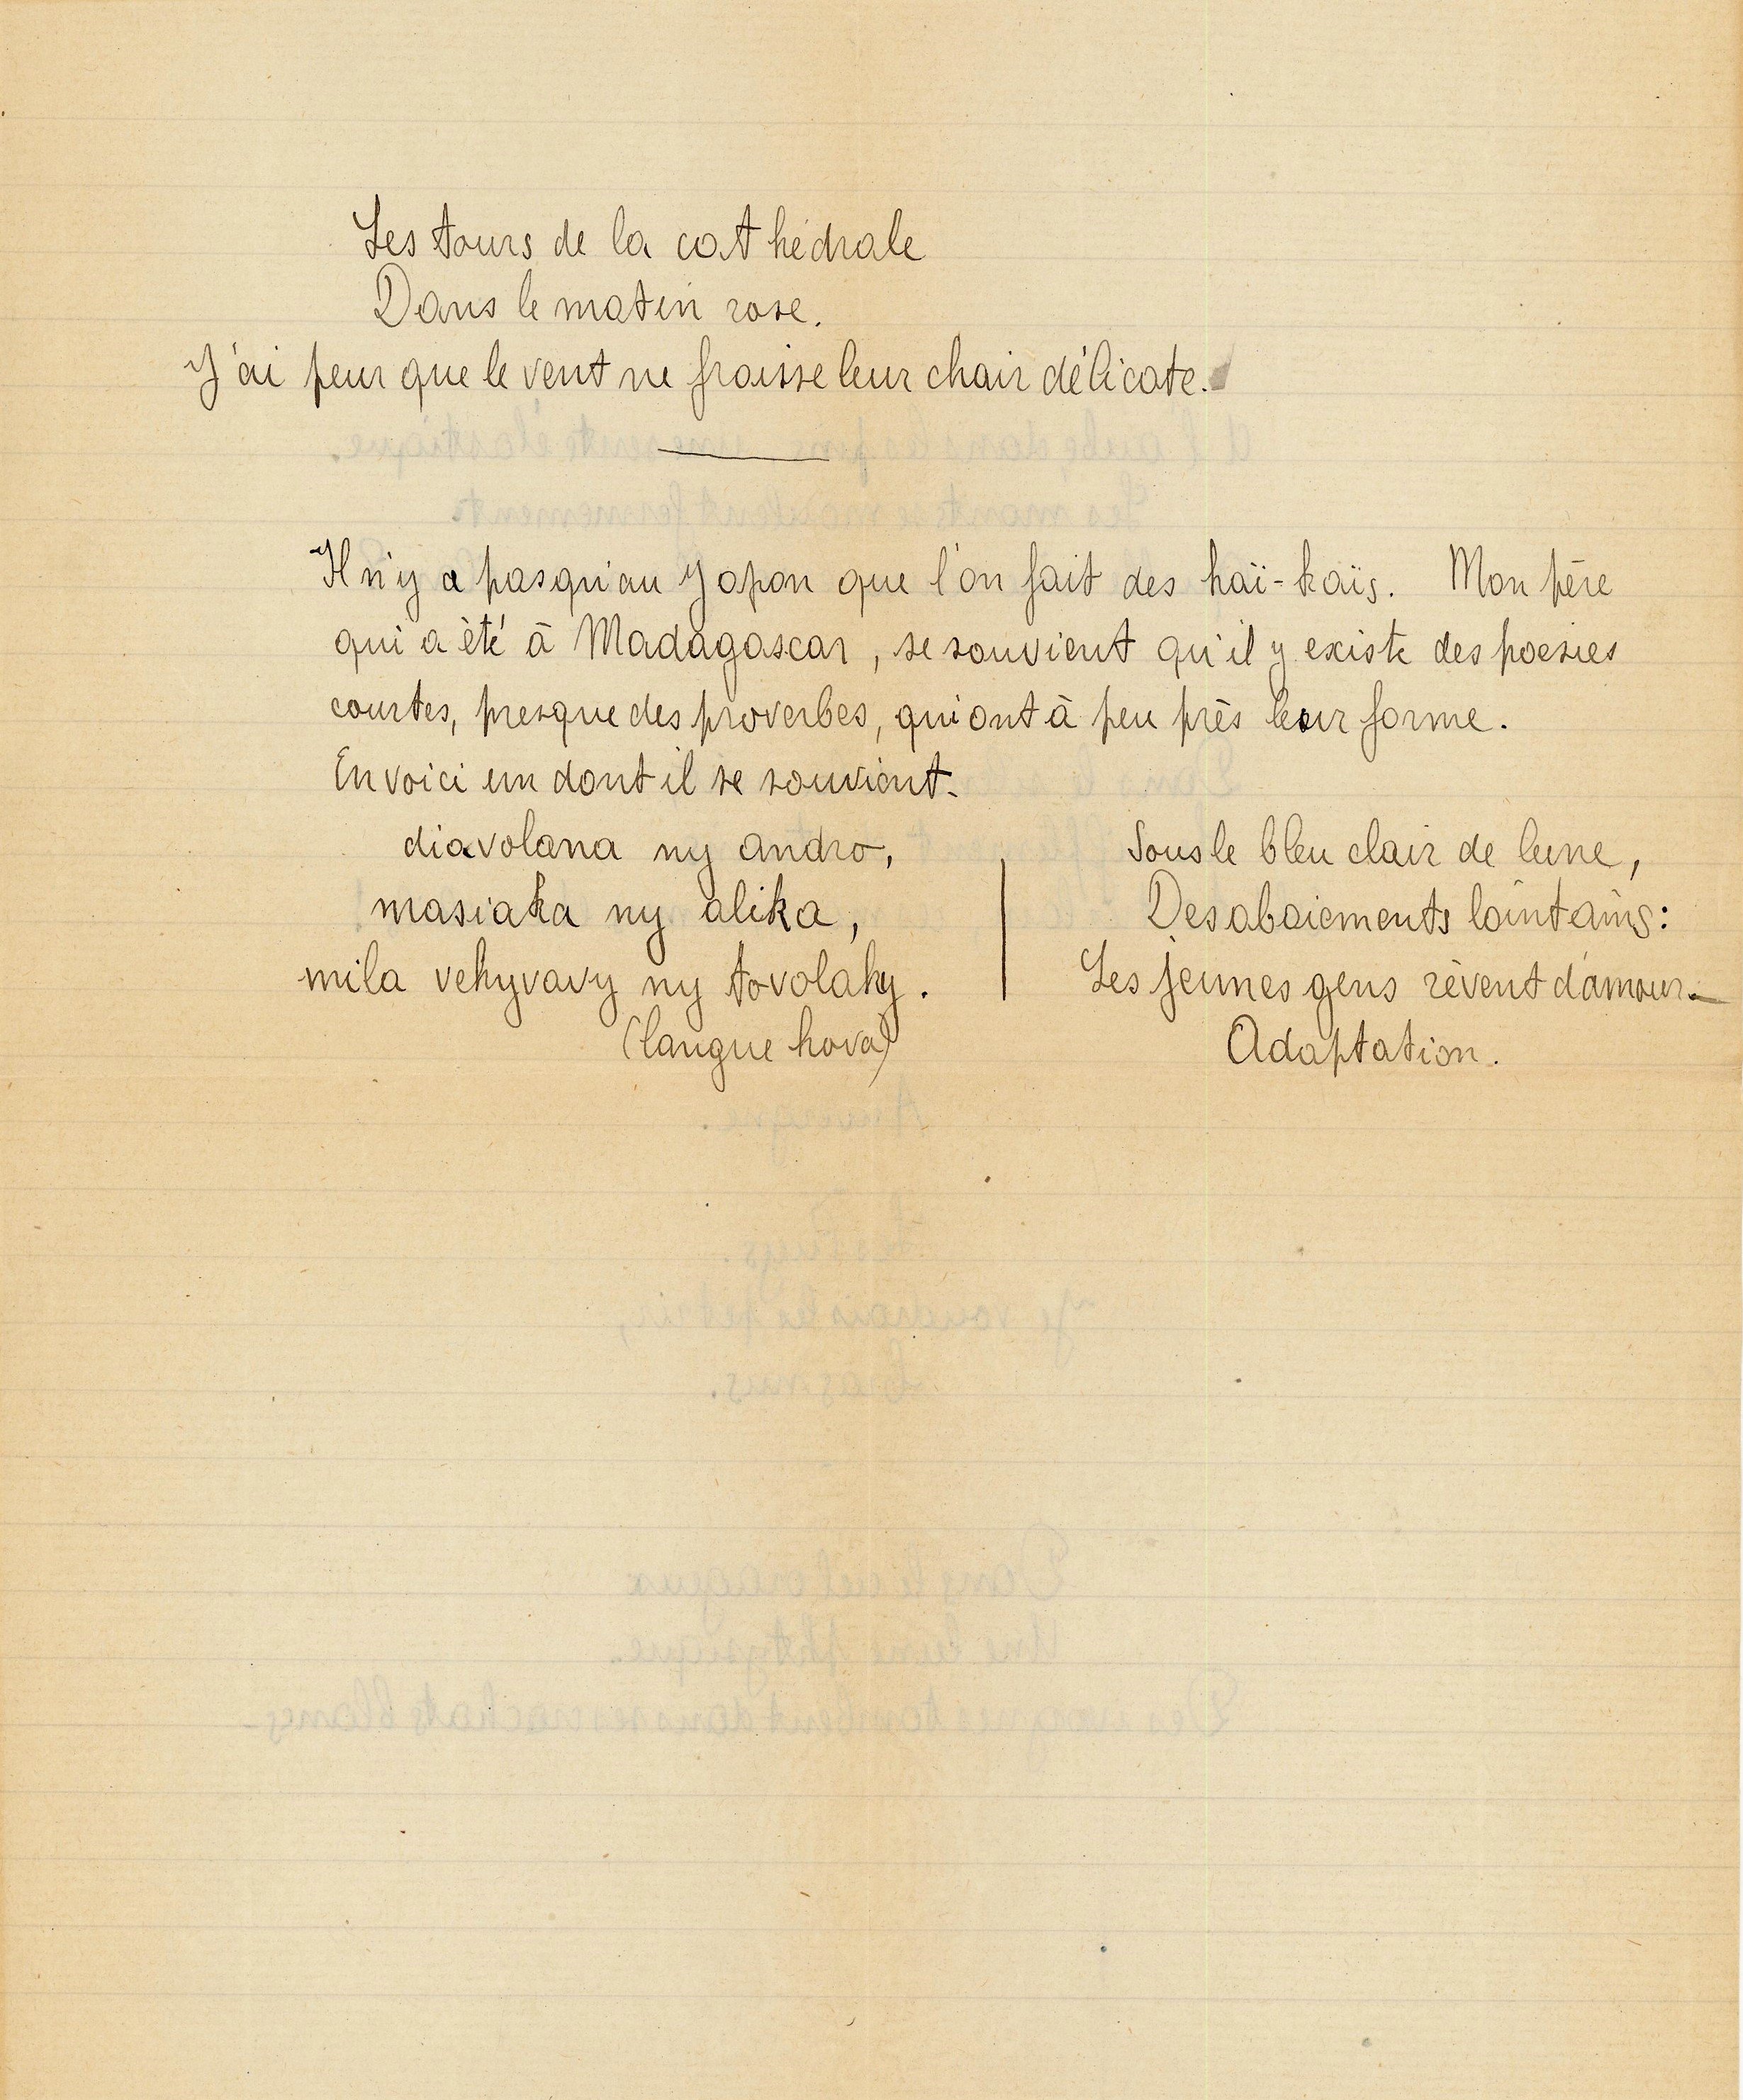 Les tours de la cathédrale
Dans le matin rose.
J'ai peur que le vent ne froisse leur chair délicate.
Il n'y a pas qu'au Japon que l'on fait des haï-kaïs. Mon père
qui a été à Madagascar, se souvient qu'il y existe des poesies
courtes, presque des proverbes, qui ont à peu près leur forme.
En voici un dont il se souvient.
diavolana ny andro,
masiaka ny alika,
mila vehyvavy ny tovolahy.
(langue hova)
Sous le bleu clair de lune,
Des aboiements lointains:
Les jeunes gens rêvent d'amour.
Adaptation.